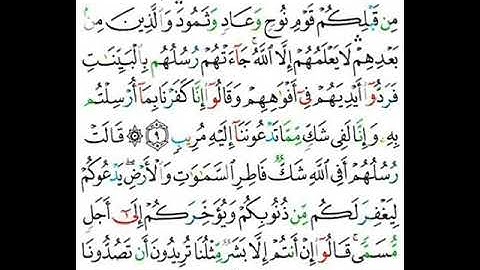 مِن قَبْلِكُمْ قَوْمِ نُوحٍ وَعَادٍ وَثَمُودَ وَالَّذِينَ مِنۢ
بَعْدِهِمْ لَا يَعْلَمُهُمْ إِلَّا اللَّهُ جَاءَتْهُمْ رُسُلُهُم بِالْبَيِّنَٰتِ
فَرَدُّوٓا۟ أَيْدِيَهُمْ فِىٓ أَفْوَٰهِهِمْ وَقَالُوٓا۟ إِنَّا كَفَرْنَا بِمَآ أُرْسِلْتُم
بِهِۦ وَإِنَّا لَفِى شَكٍّ مِّمَّا تَدْعُونَنَآ إِلَيْهِ مُرِيبٍ ٩ ۞ قَالَتْ
رُسُلُهُمْ أَفِى اللَّهِ شَكٌّ فَاطِرِ السَّمَٰوَٰتِ وَالْأَرْضِ ۖ يَدْعُوكُمْ
لِيَغْفِرَ لَكُم مِّن ذُنُوبِكُمْ وَيُؤَخِّرَكُمْ إِلَىٰٓ أَجَلٍ
مُّسَمًّى ۚ قَالُوٓا۟ إِنْ أَنتُمْ إِلَّا بَشَرٌ مِّثْلُنَا تُرِيدُونَ أَن تَصُدُّونَا